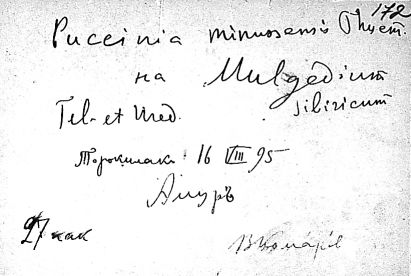 172
Puccinia minussensis Thüem.
на Mulgedium
sibiricum
Tel. et Ured.
16 VIII 95
Амуръ
27 как